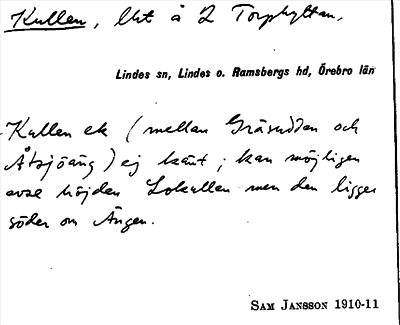 Kullen, Utt å 2 Torphyttan,
Lindes sn, Lindes o. Ramsbergs hd, Örebro län
Kullen ek (mellan Gräsudden och
Åtsjöäng) ej känt; kan möjligen
avse höjden Lokullen men den ligger
söder om Ängen.
SAM JANSSON 1910-11